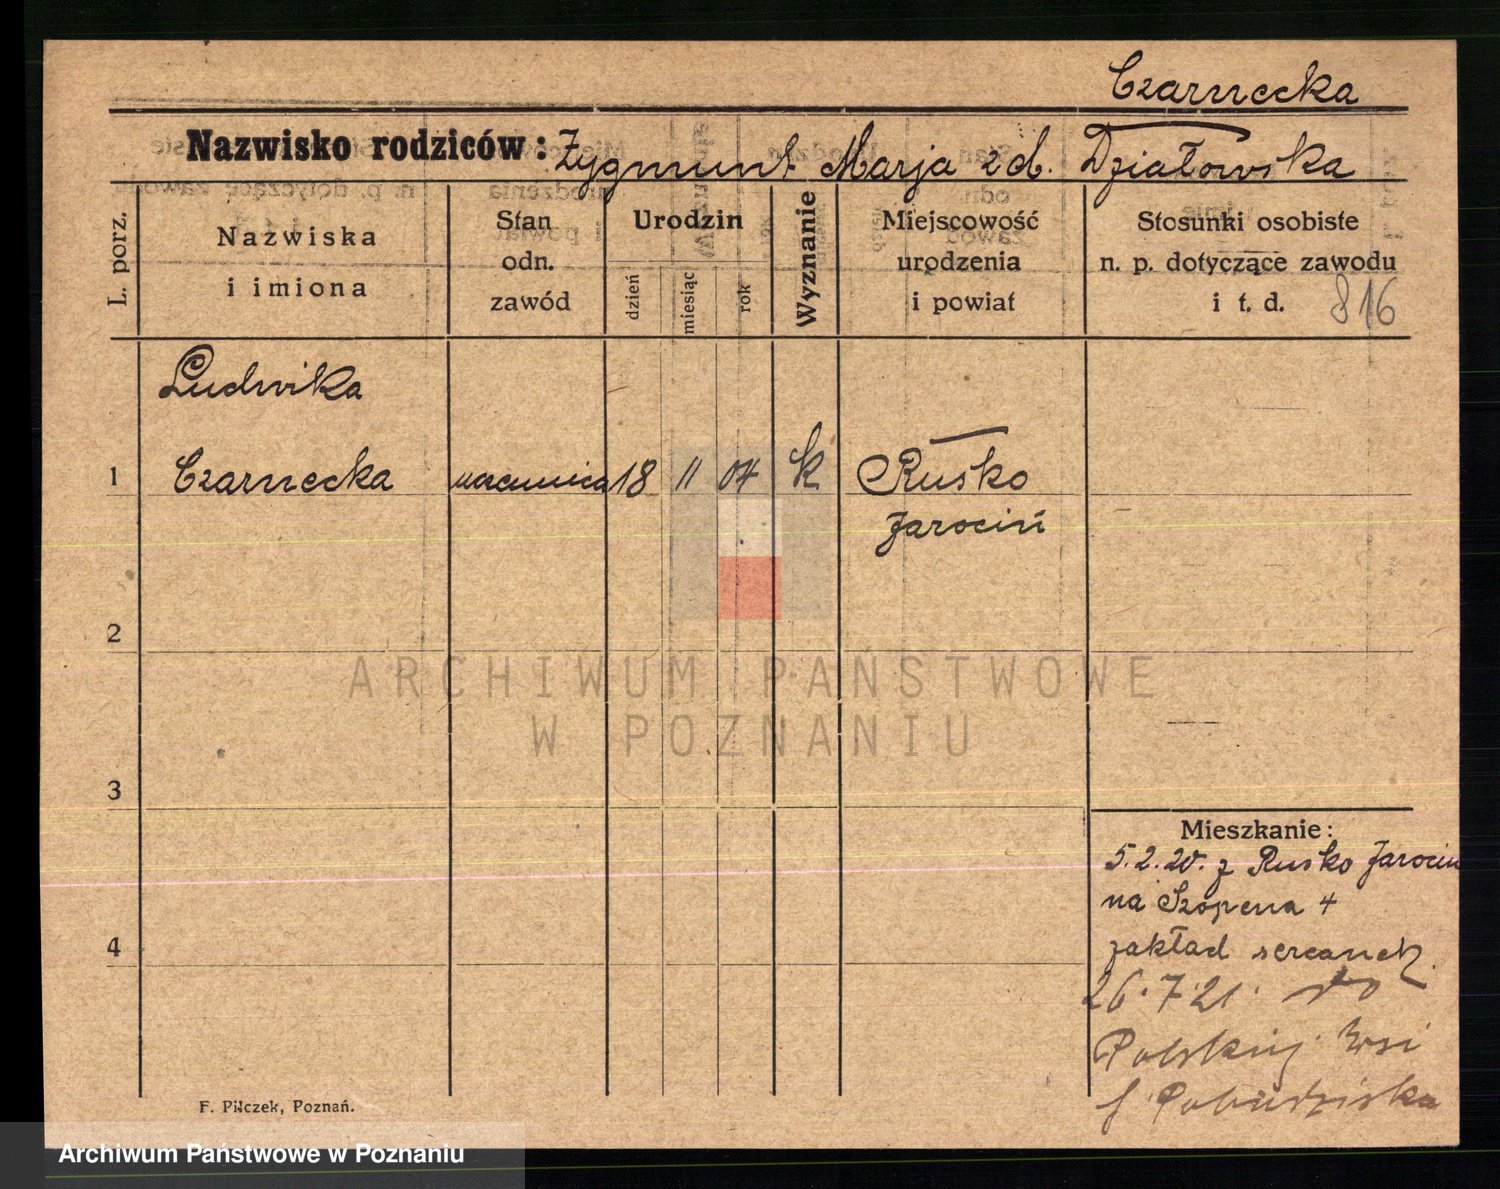 Czarnecka
Nazwisko rodziców: Zygmunt Marja zd. Działowska
L. porz.
Nazwiska
i imiona
Stan
odn.
zawód
Urodzin
dzień
miesiąc
rok
Wyznanie
Miejscowość
urodzenia
i powiat
Stosunki osobiste
n. p. dotyczące zawodu
i t. d. 816
Ludwika
1 Czarnecka uczennica 18 11 04 k Rusko
Jarocin
2
3
4
ARCHIWUM PAŃSTWOWE
W POZNANIU
Mieszkanie:
5.2.20. z Rusko Jarocin
na Szopena 4
zakład sercanek
26.7.21. do
Polskiej Wsi
p. Pobiedziska
F. Pilczek, Poznań.
Archiwum Państwowe w Poznaniu